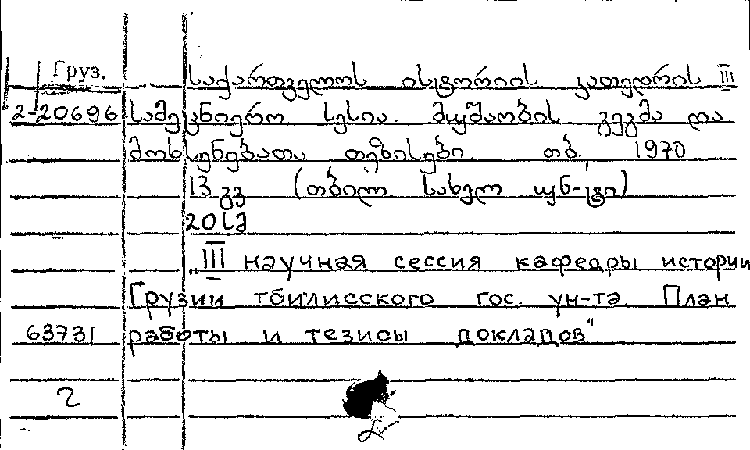 Груз.
საქართველოს ისტორიის კათედრის III
2-20696 სამეცნიერო სესია. მუშაობის გეგმა და
მოხსენებათა თეზისები. თბ. 1970
13 გვ (თბილ. სახელ. უნ-ტი)
20 სმ
„III научная сессия кафедры истории
Грузии тбилисского гос. ун-та План
63731 работы и тезисы докладов"
2